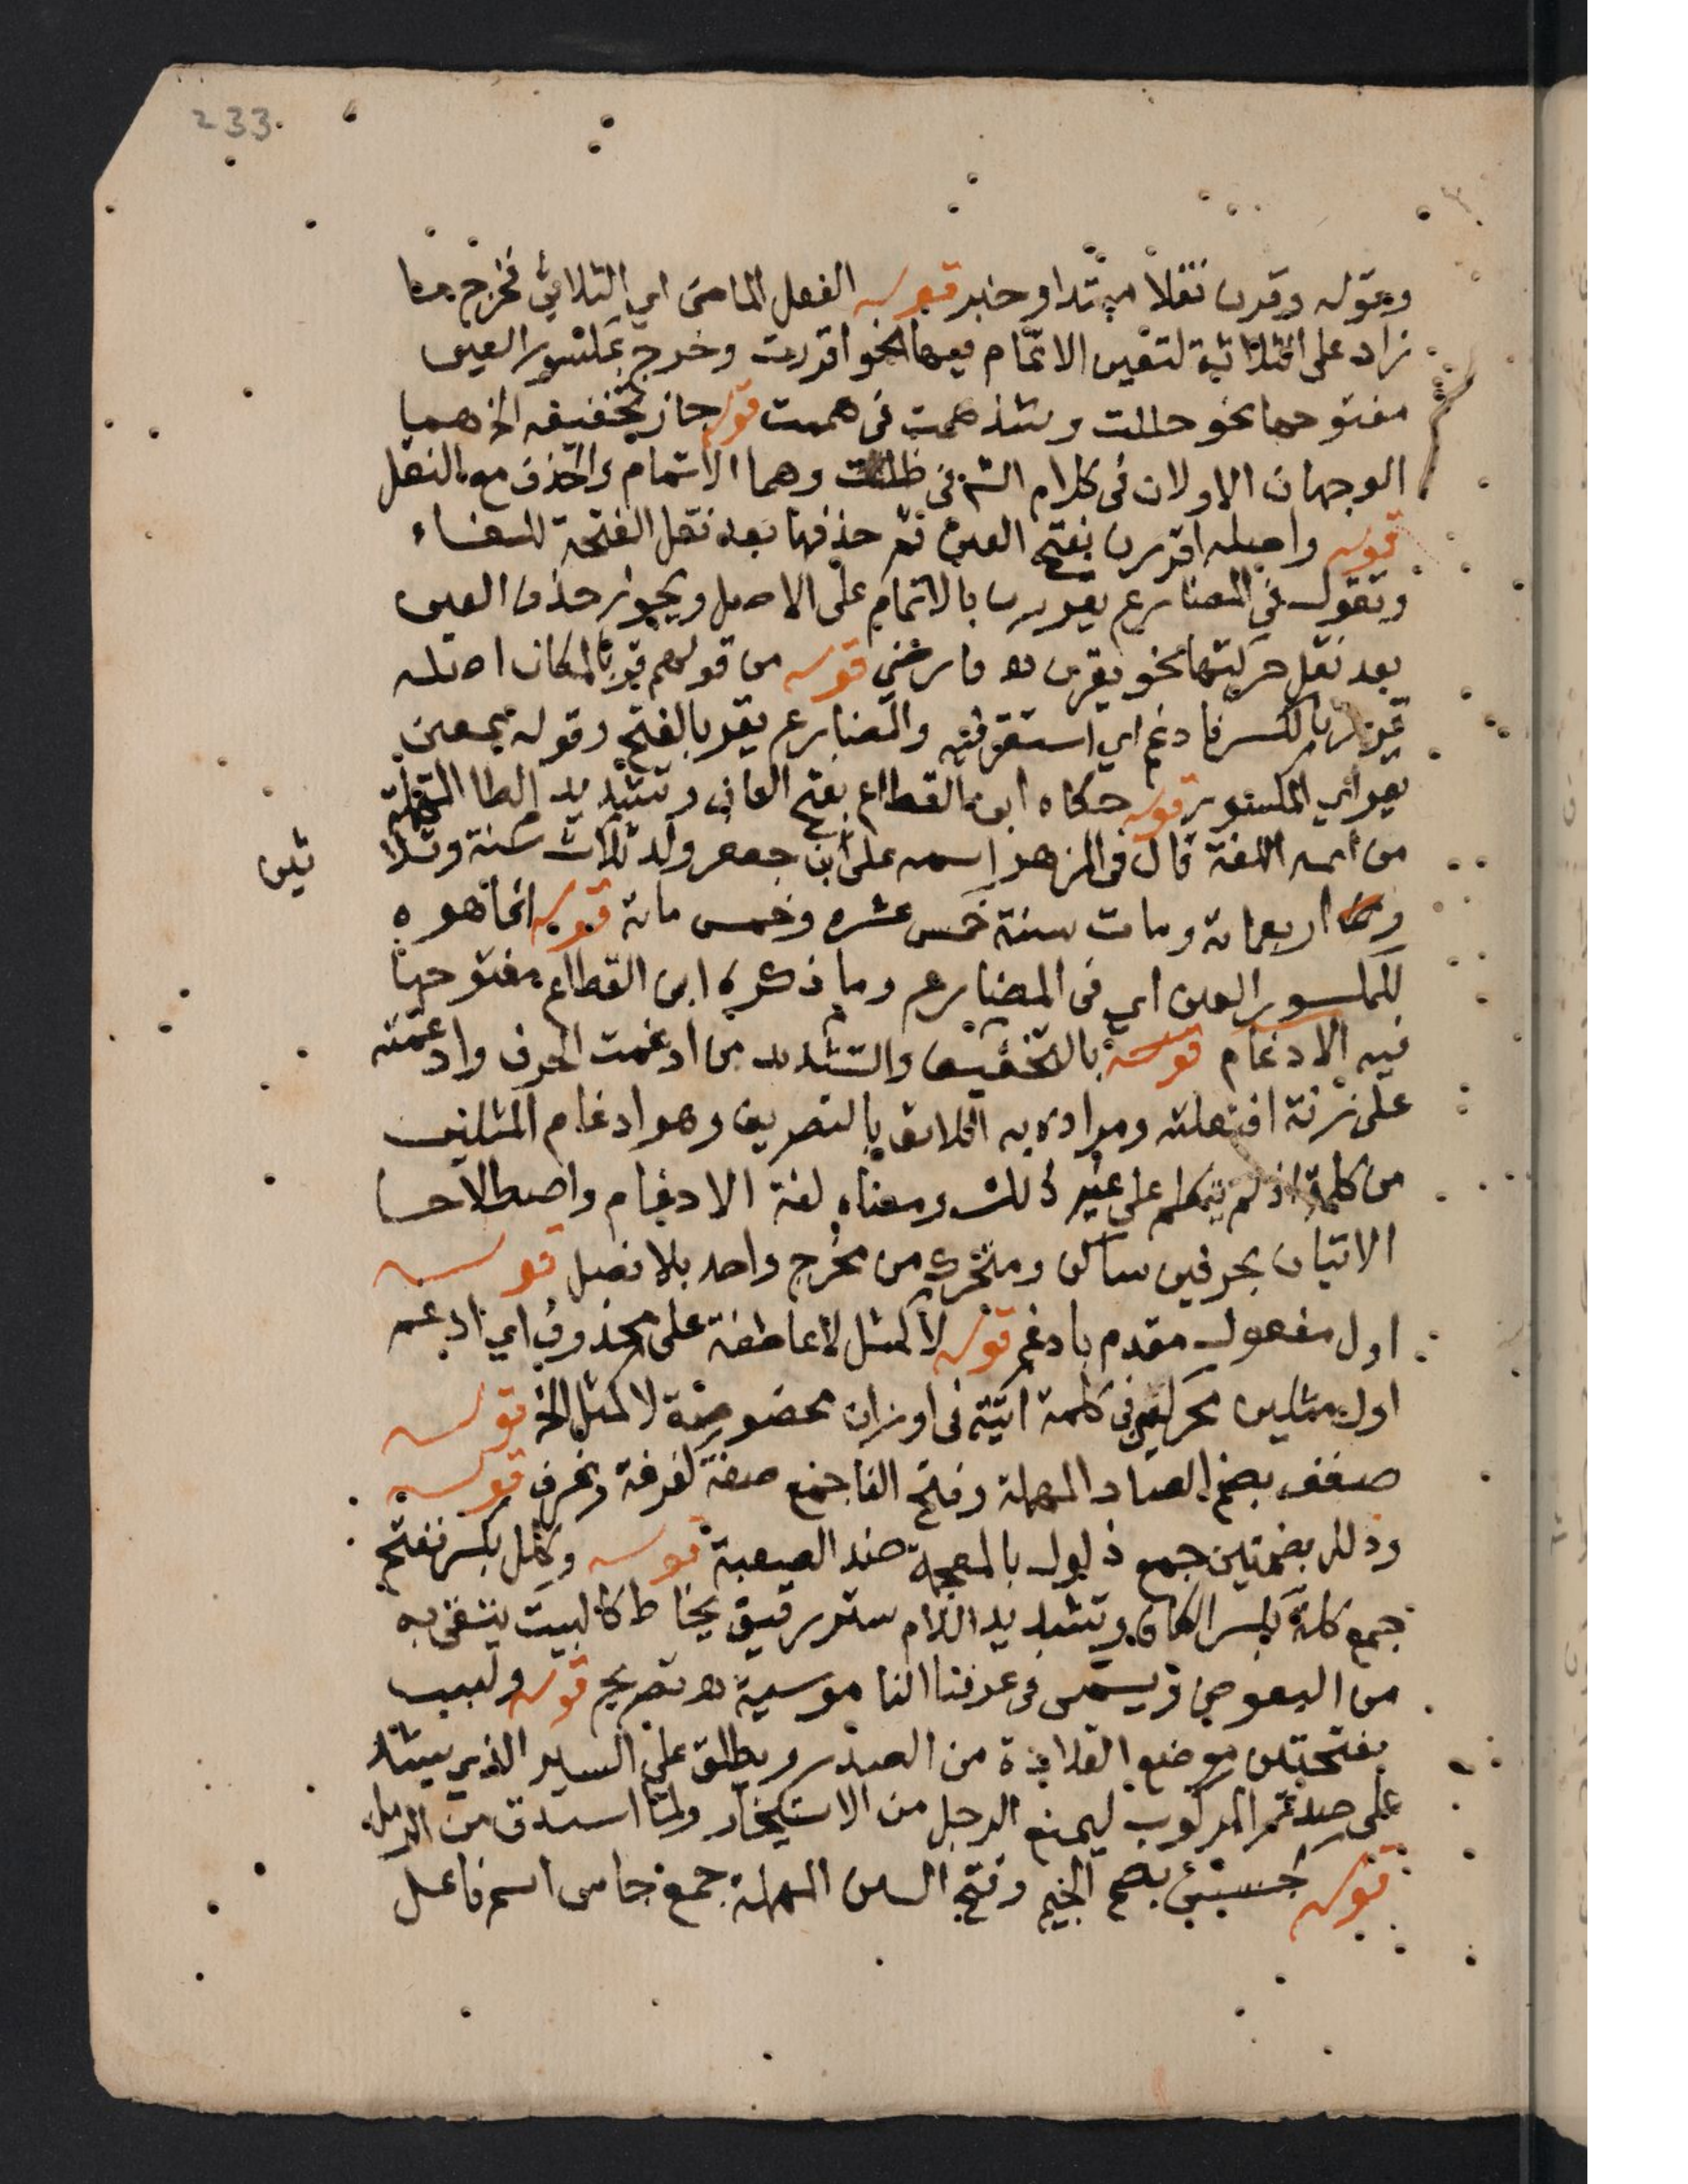 233
وقوله وقرن نقلا مبتدا وخبر قوله الفعل الماضي اي الثلاثي فخرج ما
زاد على الثلاثة لتعين الاتمام فيهما نحو اقررت وخرج بمكسور العين
مفتوحها نحو حللت وشذ همت في هممت قوله جاز تخفيفه الخ هما
الوجهان الاولان في كلام الش في ظللت وهما الاتمام والحذف مع النقل
قوله واصله اقررن بفتح العين ثم حذفها بعد نقل الفتحة للفاء
وتقول في المضارع يقررن بالاتمام على الاصل ويجوز حذف العين
بعد نقل حركتها نحو يقرن فارضي قوله من قولهم قر بالمكان اصله
قرر بالكسر فادغم اي استقر فيه والمضارع يقر بالفتح وقوله بمعنى
يقر اي المكسور قوله حكاه ابن القطاع بفتح القاف وتشديد الطا المهملة
من ائمه اللغة قال في المزهر اسمه على ابن جعفر ولد ثلاث سنة وثلا
ثين
واربعماية ومات سنة خمس عشره وخمس ماية قوله انما هو
للمكسور العين اي في المضارع وما ذكره ابن القطاع مفتوحها
فيه الادغام قوله بالتخفيف والتشديد من ادغمت الحرف وادغمته
على زنة افتعلته ومراده به اللائق بالتصريف وهو ادغام المثلين
من كلمة اذ لم يتكلم على غير ذلك ومعناه لغة الادغام واصطلاحا
الاتيان بحرفين ساكن ومتحرك من مخرج واحد بلا فصل قوله
اول مفعول مقدم بادغم قوله لا كمثل لا عاطفة على محذوف اي ادغم
اول مثلين محركين في كلمة اتية في اوزان مخصوصة لا كمثل الخ قوله
صفف بضم الصاد المهملة وفتح الفا جمع صفة كغرفة وغرف قوله
وذلل بضمتين جمع ذلول بالمعجمة ضد الصعبة قوله وكلل بكسر ففتح
جمع كلة بكسر الكاف وتشديد اللام ستر رقيق يخاط كالبيت يتقى به
من البعوض ويسمى في عرفنا الناموسية تصريح قوله ولبب
بفتحتين موضع القلادة من الصدر ويطلق على السير الذي يشد
على صدر المركوب ليمنع الرحل من الاستيخار ولما استدق من الرمل
قوله جسس بضم الجيم وفتح السين المهملة جمع جاس اسم فاعل